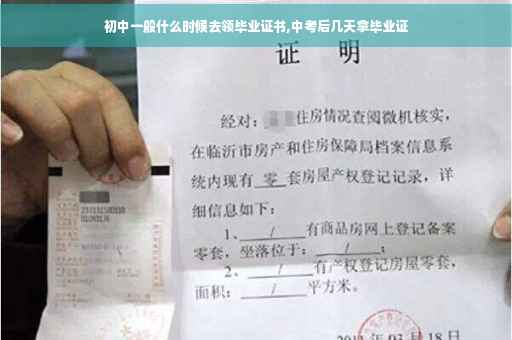 初中一般什么时候去领毕业证书,中考后几天拿毕业证
证 明
经对: 住房情况查阅微机核实,
在临沂市房产和住房保障局档案信息系
统内现有 零 套房屋产权登记记录,详
细信息如下:
1、 / 有商品房网上登记备案
零套,坐落位于: / ;
2、 / 有产权登记房屋零套,
面积: / 平方米。
年 03 月 18 日